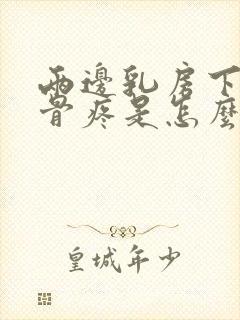 兩邊乳房下
骨疼是怎麼
皇城年少